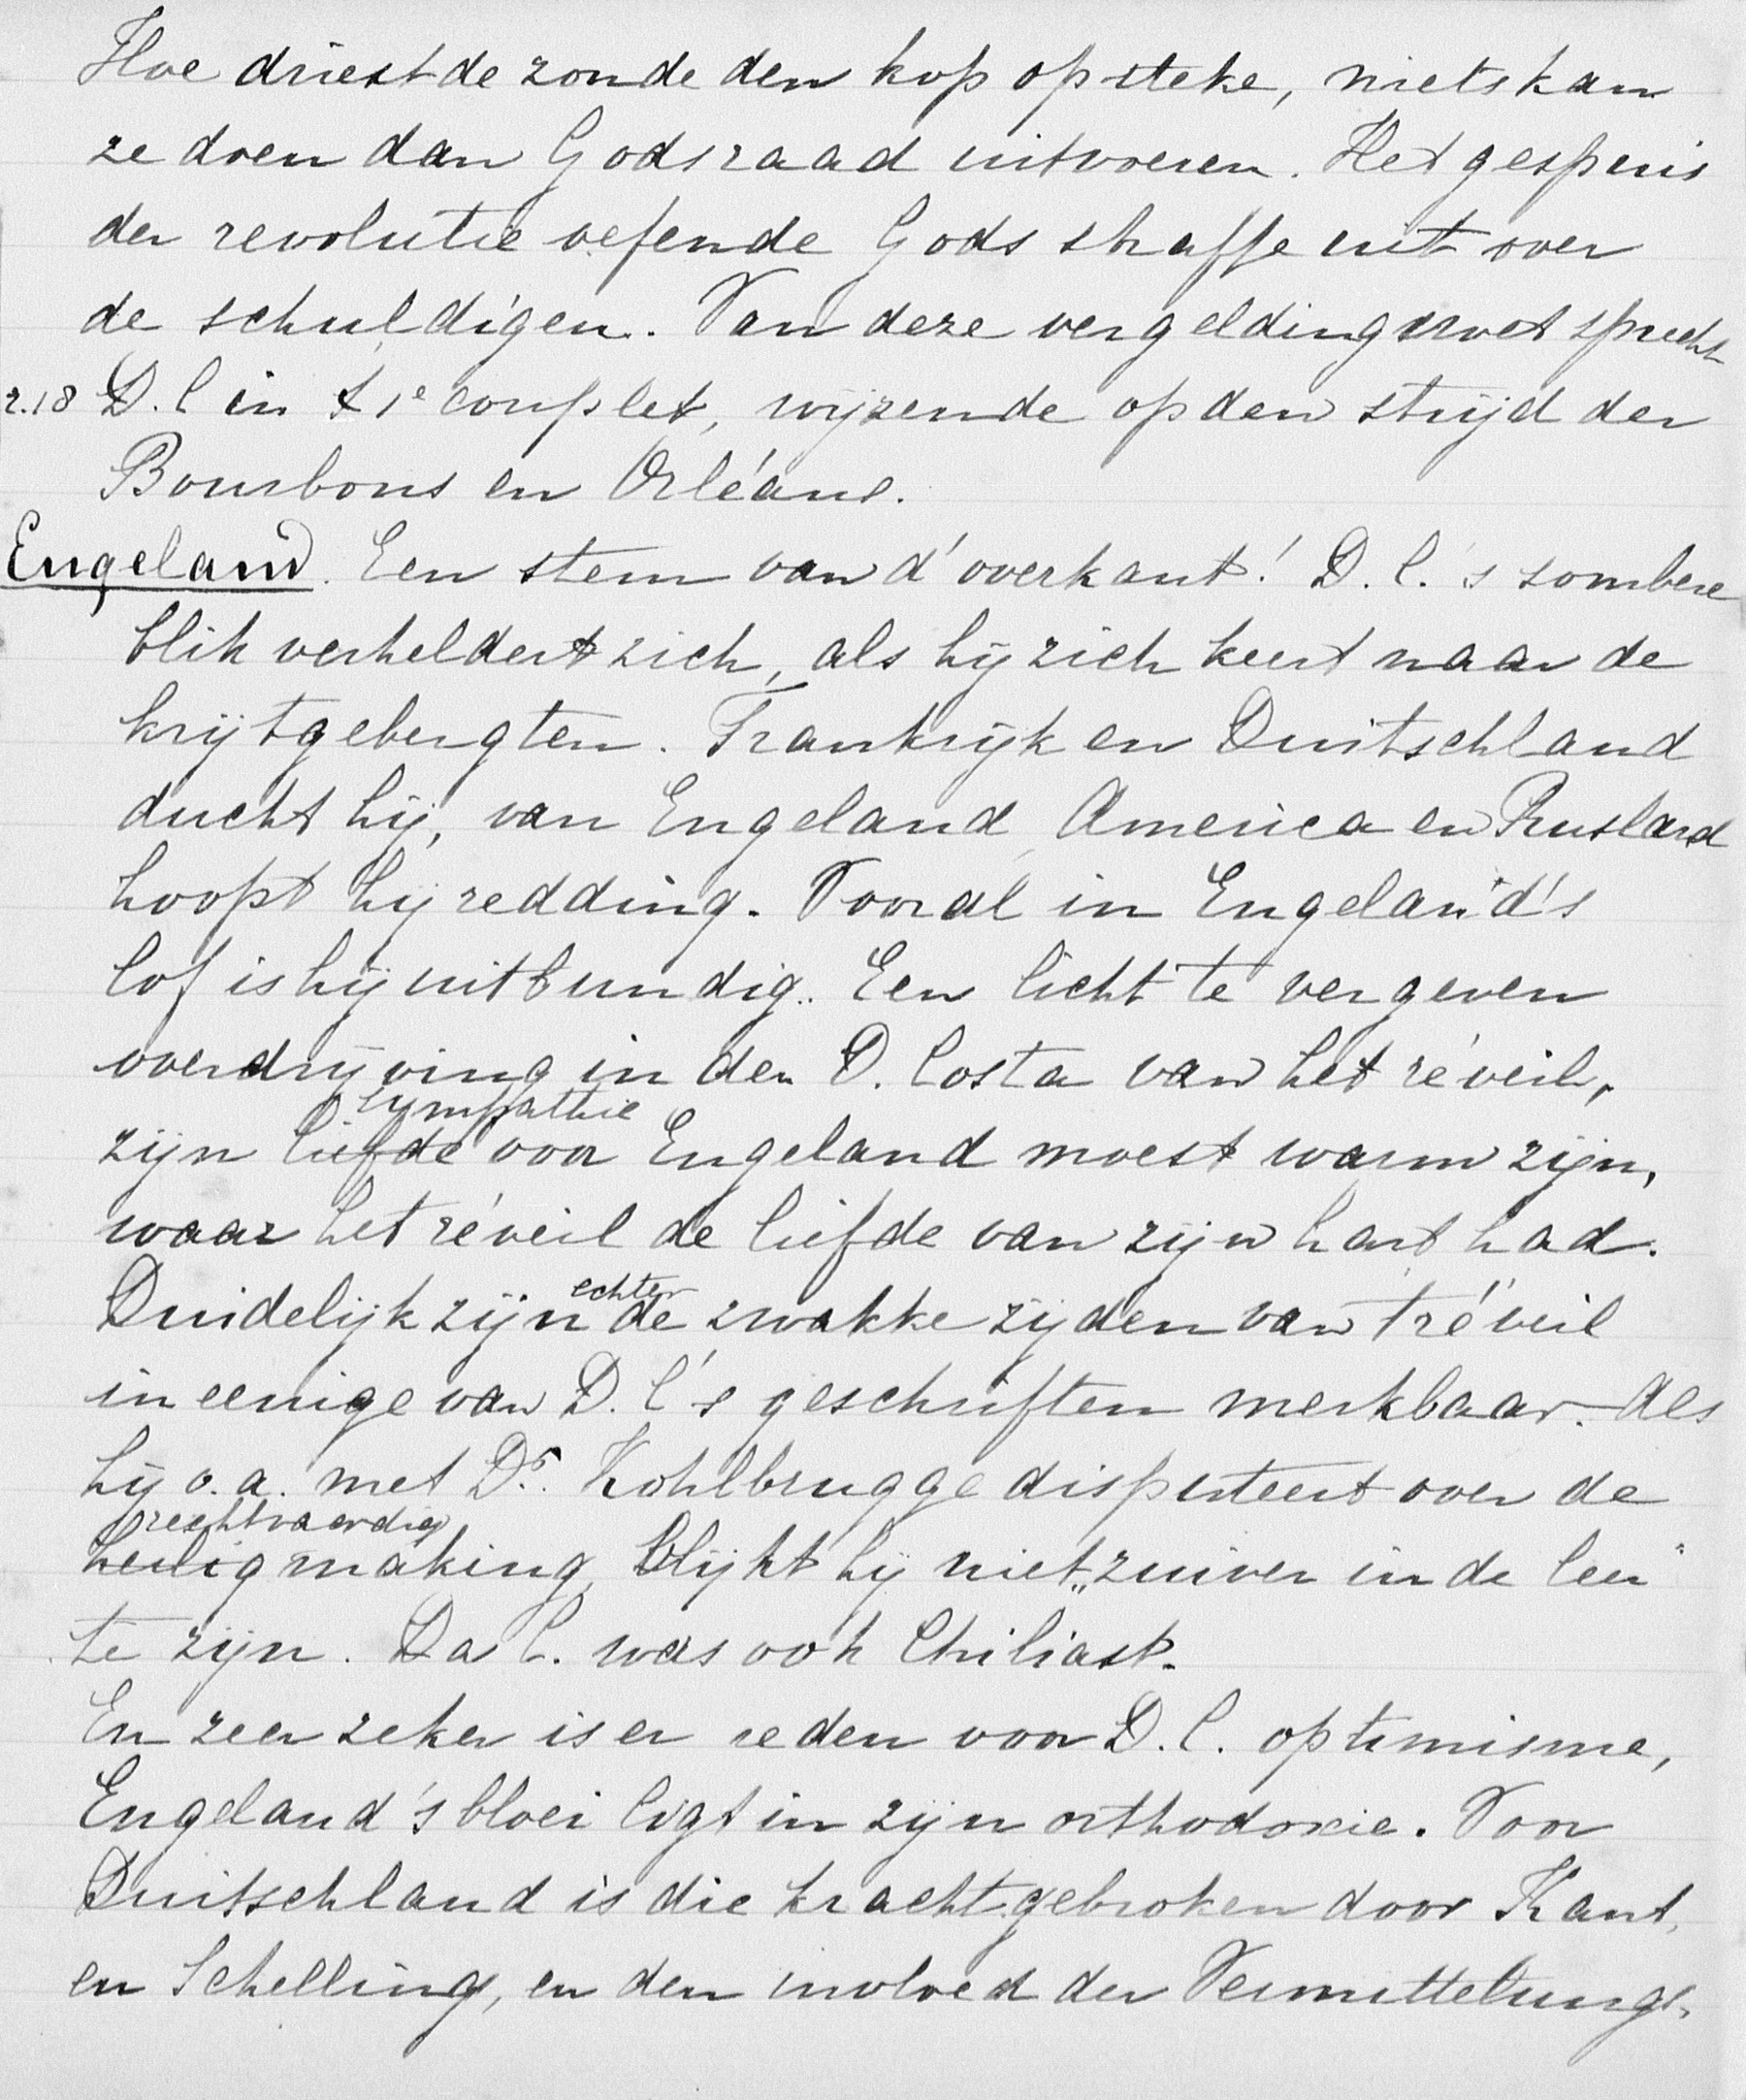 Hoe driest de zonde den kop opsteke, niets kan
ze doen dan Gods raad uitvoeren. Het gespuis
der revolutie oefende Gods straffe uit over
de schuldigen. Van deze vergeldingswet spreekt
r.18 D.C in 't 1e couplet, wijzende op den strijd der
Bourbons en Orléans.
Engeland. Een stem van d'overkant! D.C.'s sombere
blik verheldert zich, als hij zich keert naar de
krijtgebergten. Frankrijk en Duitschland
ducht hij, van Engeland, America en Rusland
hoopt hij redding. Vooral in Engeland's
lof is hij uitbundig. Een licht te vergeven
overdrijving in den D. Costa van het réveil,
sympathie
zijn liefde voor Engeland moest warm zijn,
waar het réveil de liefde van zijn hart had.
echter
Duidelijk zijn de zwakke zijden van 't réveil
in eenige van D.C's geschriften merkbaar. Als
hij o.a. met Dr. Kohlbrugge disputeert over de
rechtvaardig
heiligmaking, blijkt hij niet „zuiver in de leer"
te zijn. Da C. was ook Chiliast.
En zeer zeker is er reden voor D.C. optimisme,
Engeland's bloei ligt in zijn orthodoxie. Voor
Duitschland is die kracht gebroken door Kant,
en Schelling, en den invloed der Vermittelungs-